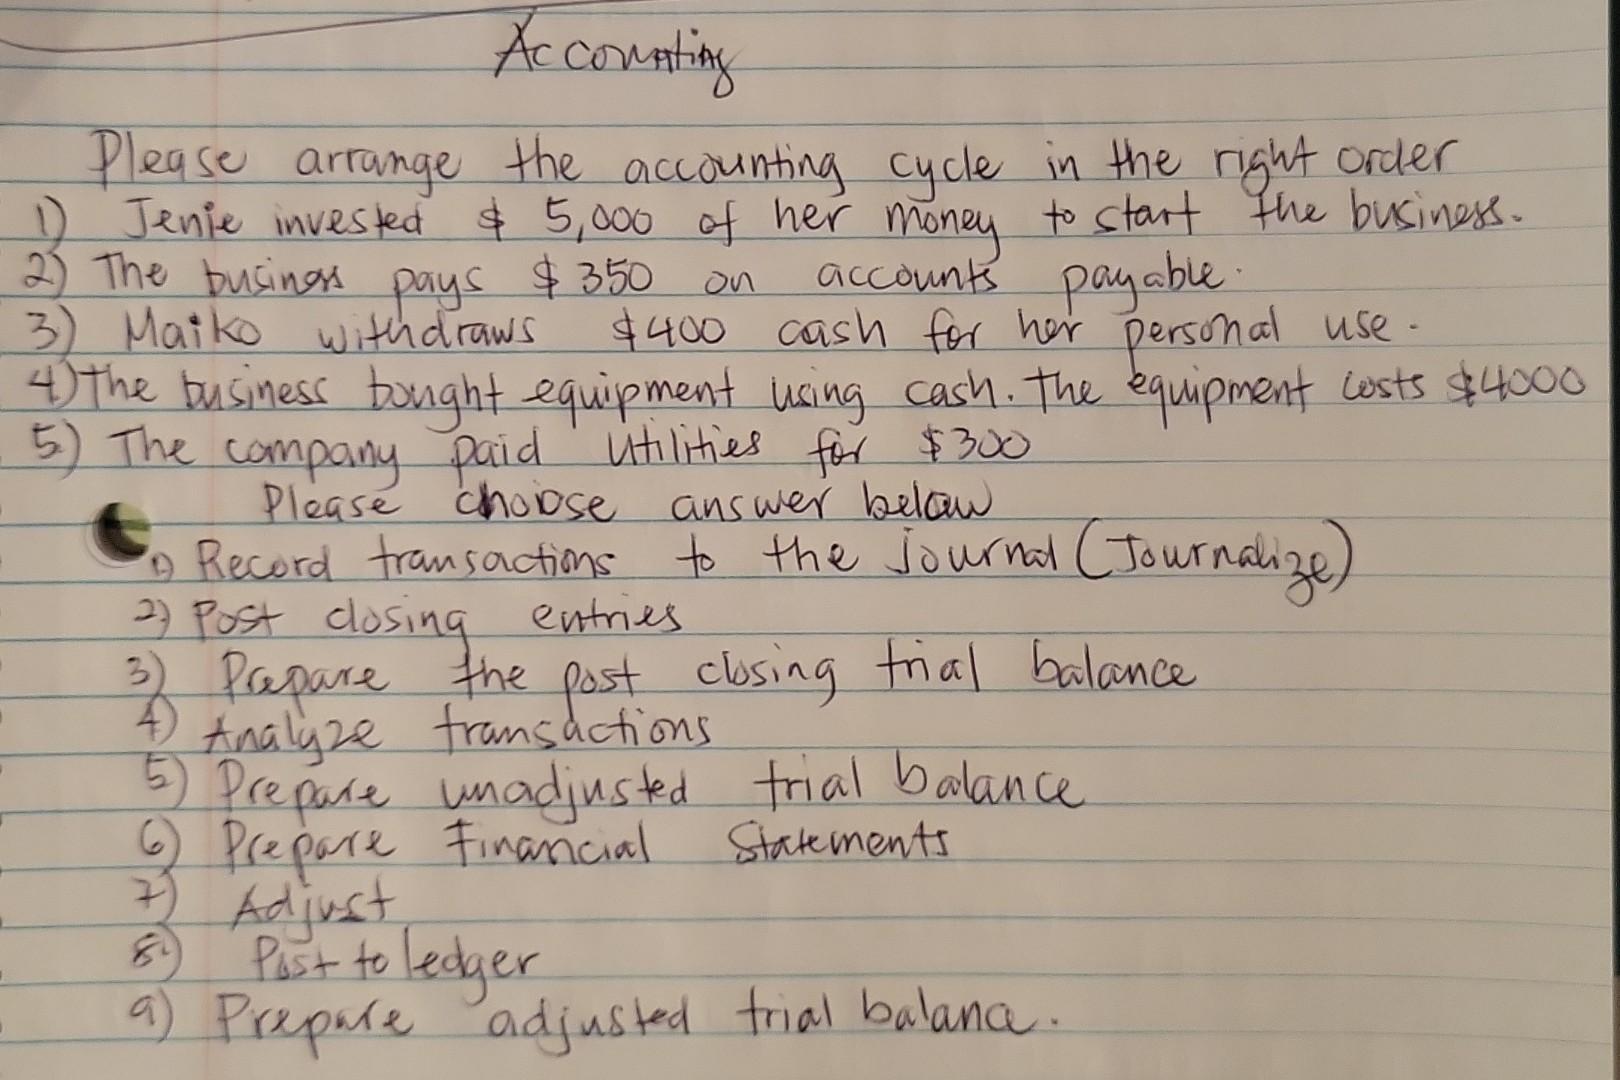 Accounting
Please arrange the accounting cycle in the right order
1) Jenie invested $ 5,000 of her money to start the business.
2) The business pays $350 on accounts payable.
3) Maiko withdraws $400 cash for her personal use.
4) The business bought equipment using cash. The equipment costs $4000
5) The company paid utilities for $300
Please choose answer below
1) Record transactions to the journal (Journalize)
2) Post closing entries
3) Prepare the post closing trial balance
4) Analyze transactions
5) Prepare unadjusted trial balance
6) Prepare Financial Statements
7) Adjust
8) Post to ledger
9) Prepare adjusted trial balance.